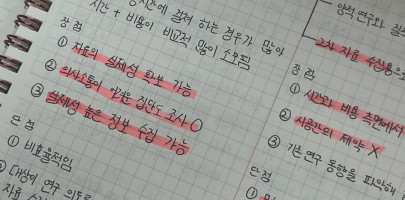 장시간에 걸쳐 하는 경우가 많아
시간 + 비용이 비교적 많이 소모됨
장점
① 자료의 실제성 확보 가능
② 의사소통이 어려운 집단도 조사 O
③ 실제성 높은 정보 수집 가능
단점
① 비효율적임
② 대상이 연구 의도를
자료
양적연구와 질적
2차 자료 수집용으로
장점
① 시간과 비용 측면에서
② 시공간의 제약 X
③ 기존 연구 동향을 파악해
단점
①